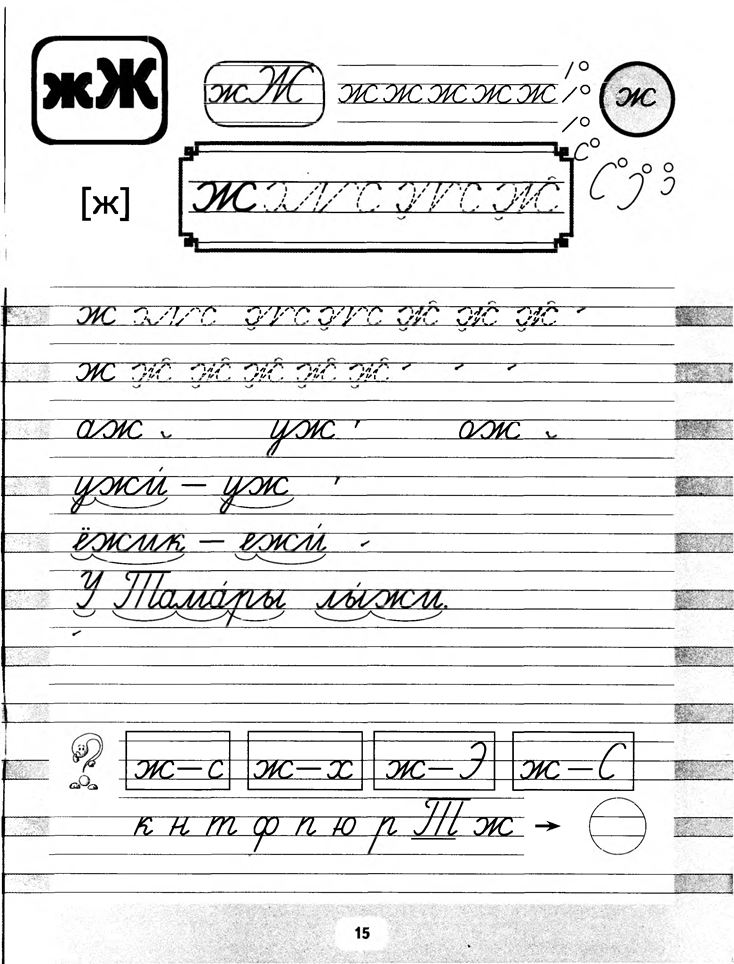 жЖ
жЖ
ж ж ж ж ж
ж
[ж]
ж ж ж ж
ж ж ж ж ж ж ж
ж ж ж ж ж ж
аж уж ож
ужи́ – уж
ёжик – ежи́
У Тама́ры лы́жи.
ж–с ж–х ж–Э ж–С
к н т ф п ю р Т ж →
15